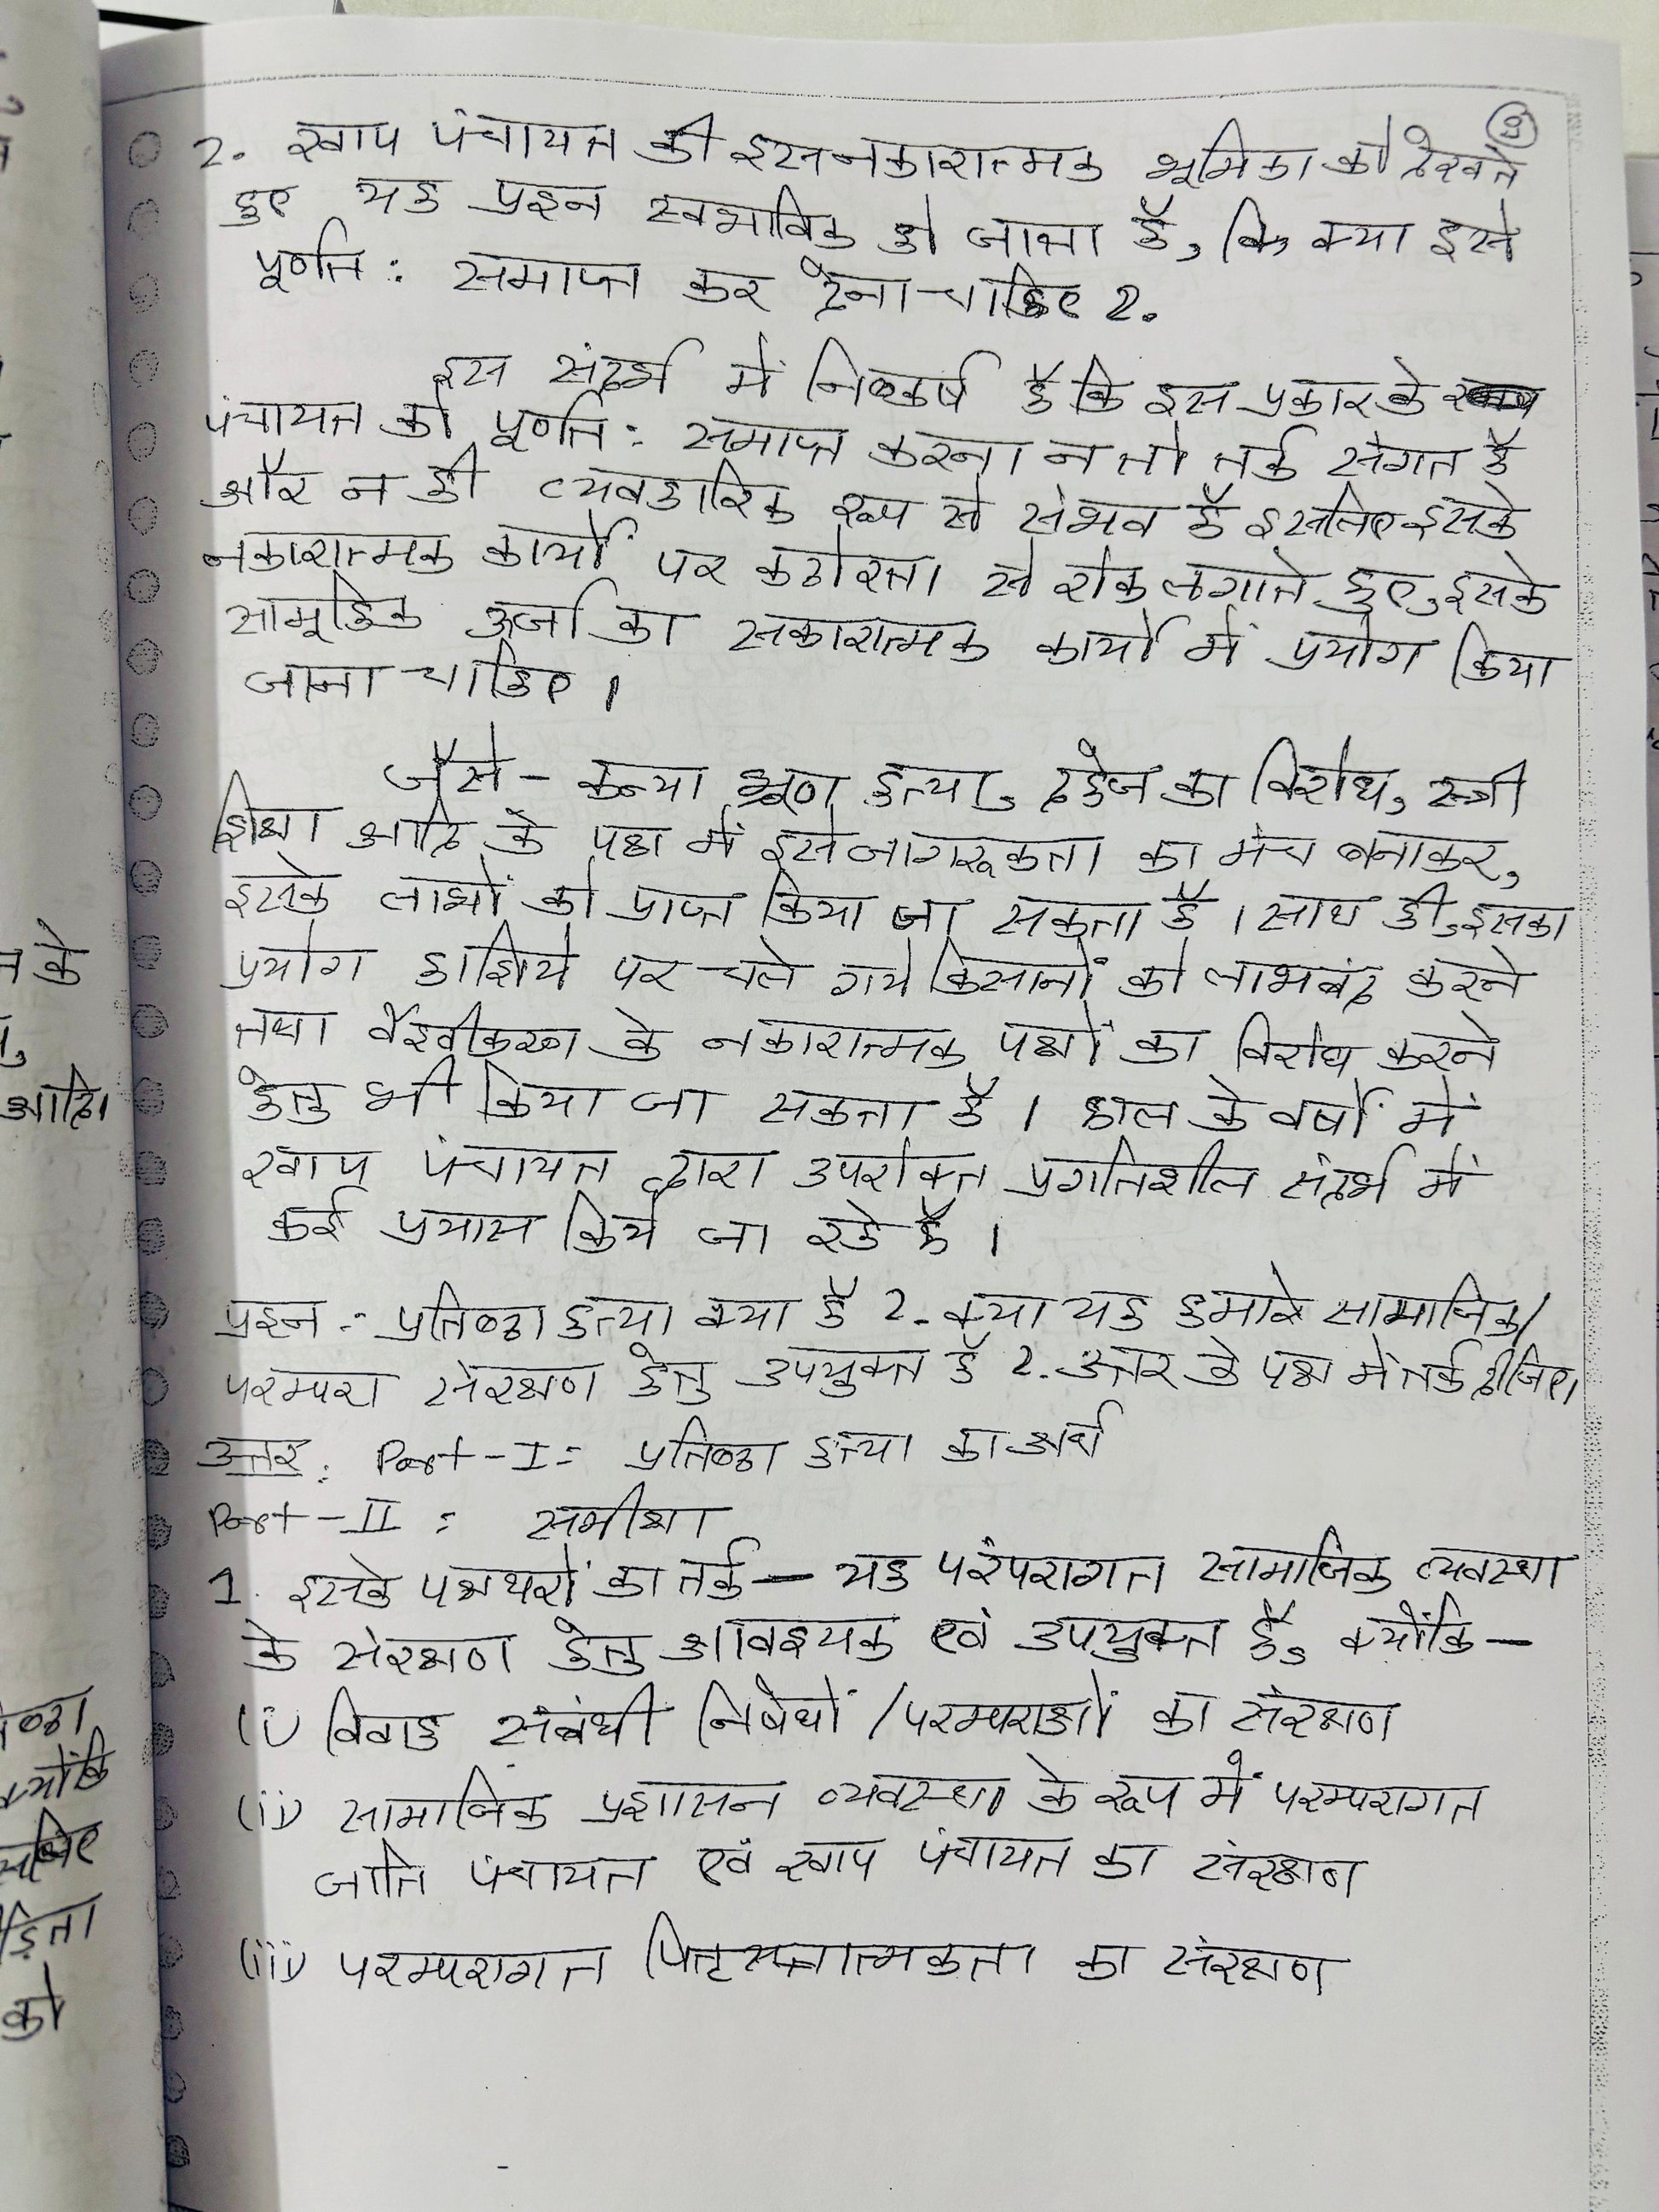 9
2. खाप पंचायत की इस नकारात्मक भूमिका को देखते
हुए यह प्रश्न स्वभाविक हो जाता है, कि क्या इसे
पूर्णत: समाप्त कर देना चाहिए ?.
इस संदर्भ में निष्कर्ष है कि इस प्रकार के
पंचायत को पूर्णत: समाप्त करना न तो तर्क संगत है
और न ही व्यवहारिक रूप से संभव है इसलिए इसके
नकारात्मक कार्यों पर कठोरता से रोक लगाते हुए, इसके
सामूहिक ऊर्जा का सकारात्मक कार्यों में प्रयोग किया
जाना चाहिए ।
जैसे - कन्या भ्रूण हत्या, दहेज का विरोध, स्त्री
शिक्षा आदि के पक्ष में इसे जागरूकता का मंच बनाकर,
इसके लाभों को प्राप्त किया जा सकता है । साथ ही, इसका
प्रयोग हाशिये पर चले गये किसानों को लाभबंद करने
तथा वैश्वीकरण के नकारात्मक पक्षों का विरोध करने
हेतु भी किया जा सकता है । हाल के वर्षों में
खाप पंचायत द्वारा उपरोक्त प्रगतिशील संदर्भ में
कई प्रयास किये जा रहे है ।
प्रश्न :- प्रतिष्ठा हत्या क्या है ?. क्या यह हमारे सामाजिक/
परम्परा संरक्षण हेतु उपयुक्त है ?. उत्तर के पक्ष में तर्क दीजिए।
उत्तर : Part - I = प्रतिष्ठा हत्या का अर्थ
Part - II = समीक्षा
1. इसके पक्षधरों का तर्क — यह परंपरागत सामाजिक व्यवस्था
के संरक्षण हेतु आवश्यक एवं उपयुक्त है, क्योंकि —
(i) विवाह संबंधी निषेधों / परम्पराओं का संरक्षण
(ii) सामाजिक प्रशासन व्यवस्था के रूप में परम्परागत
जाति पंचायत एवं खाप पंचायत का संरक्षण
(iii) परम्परागत पितृसत्तात्मकता का संरक्षण
न के
आदि।
क्योंकि
को